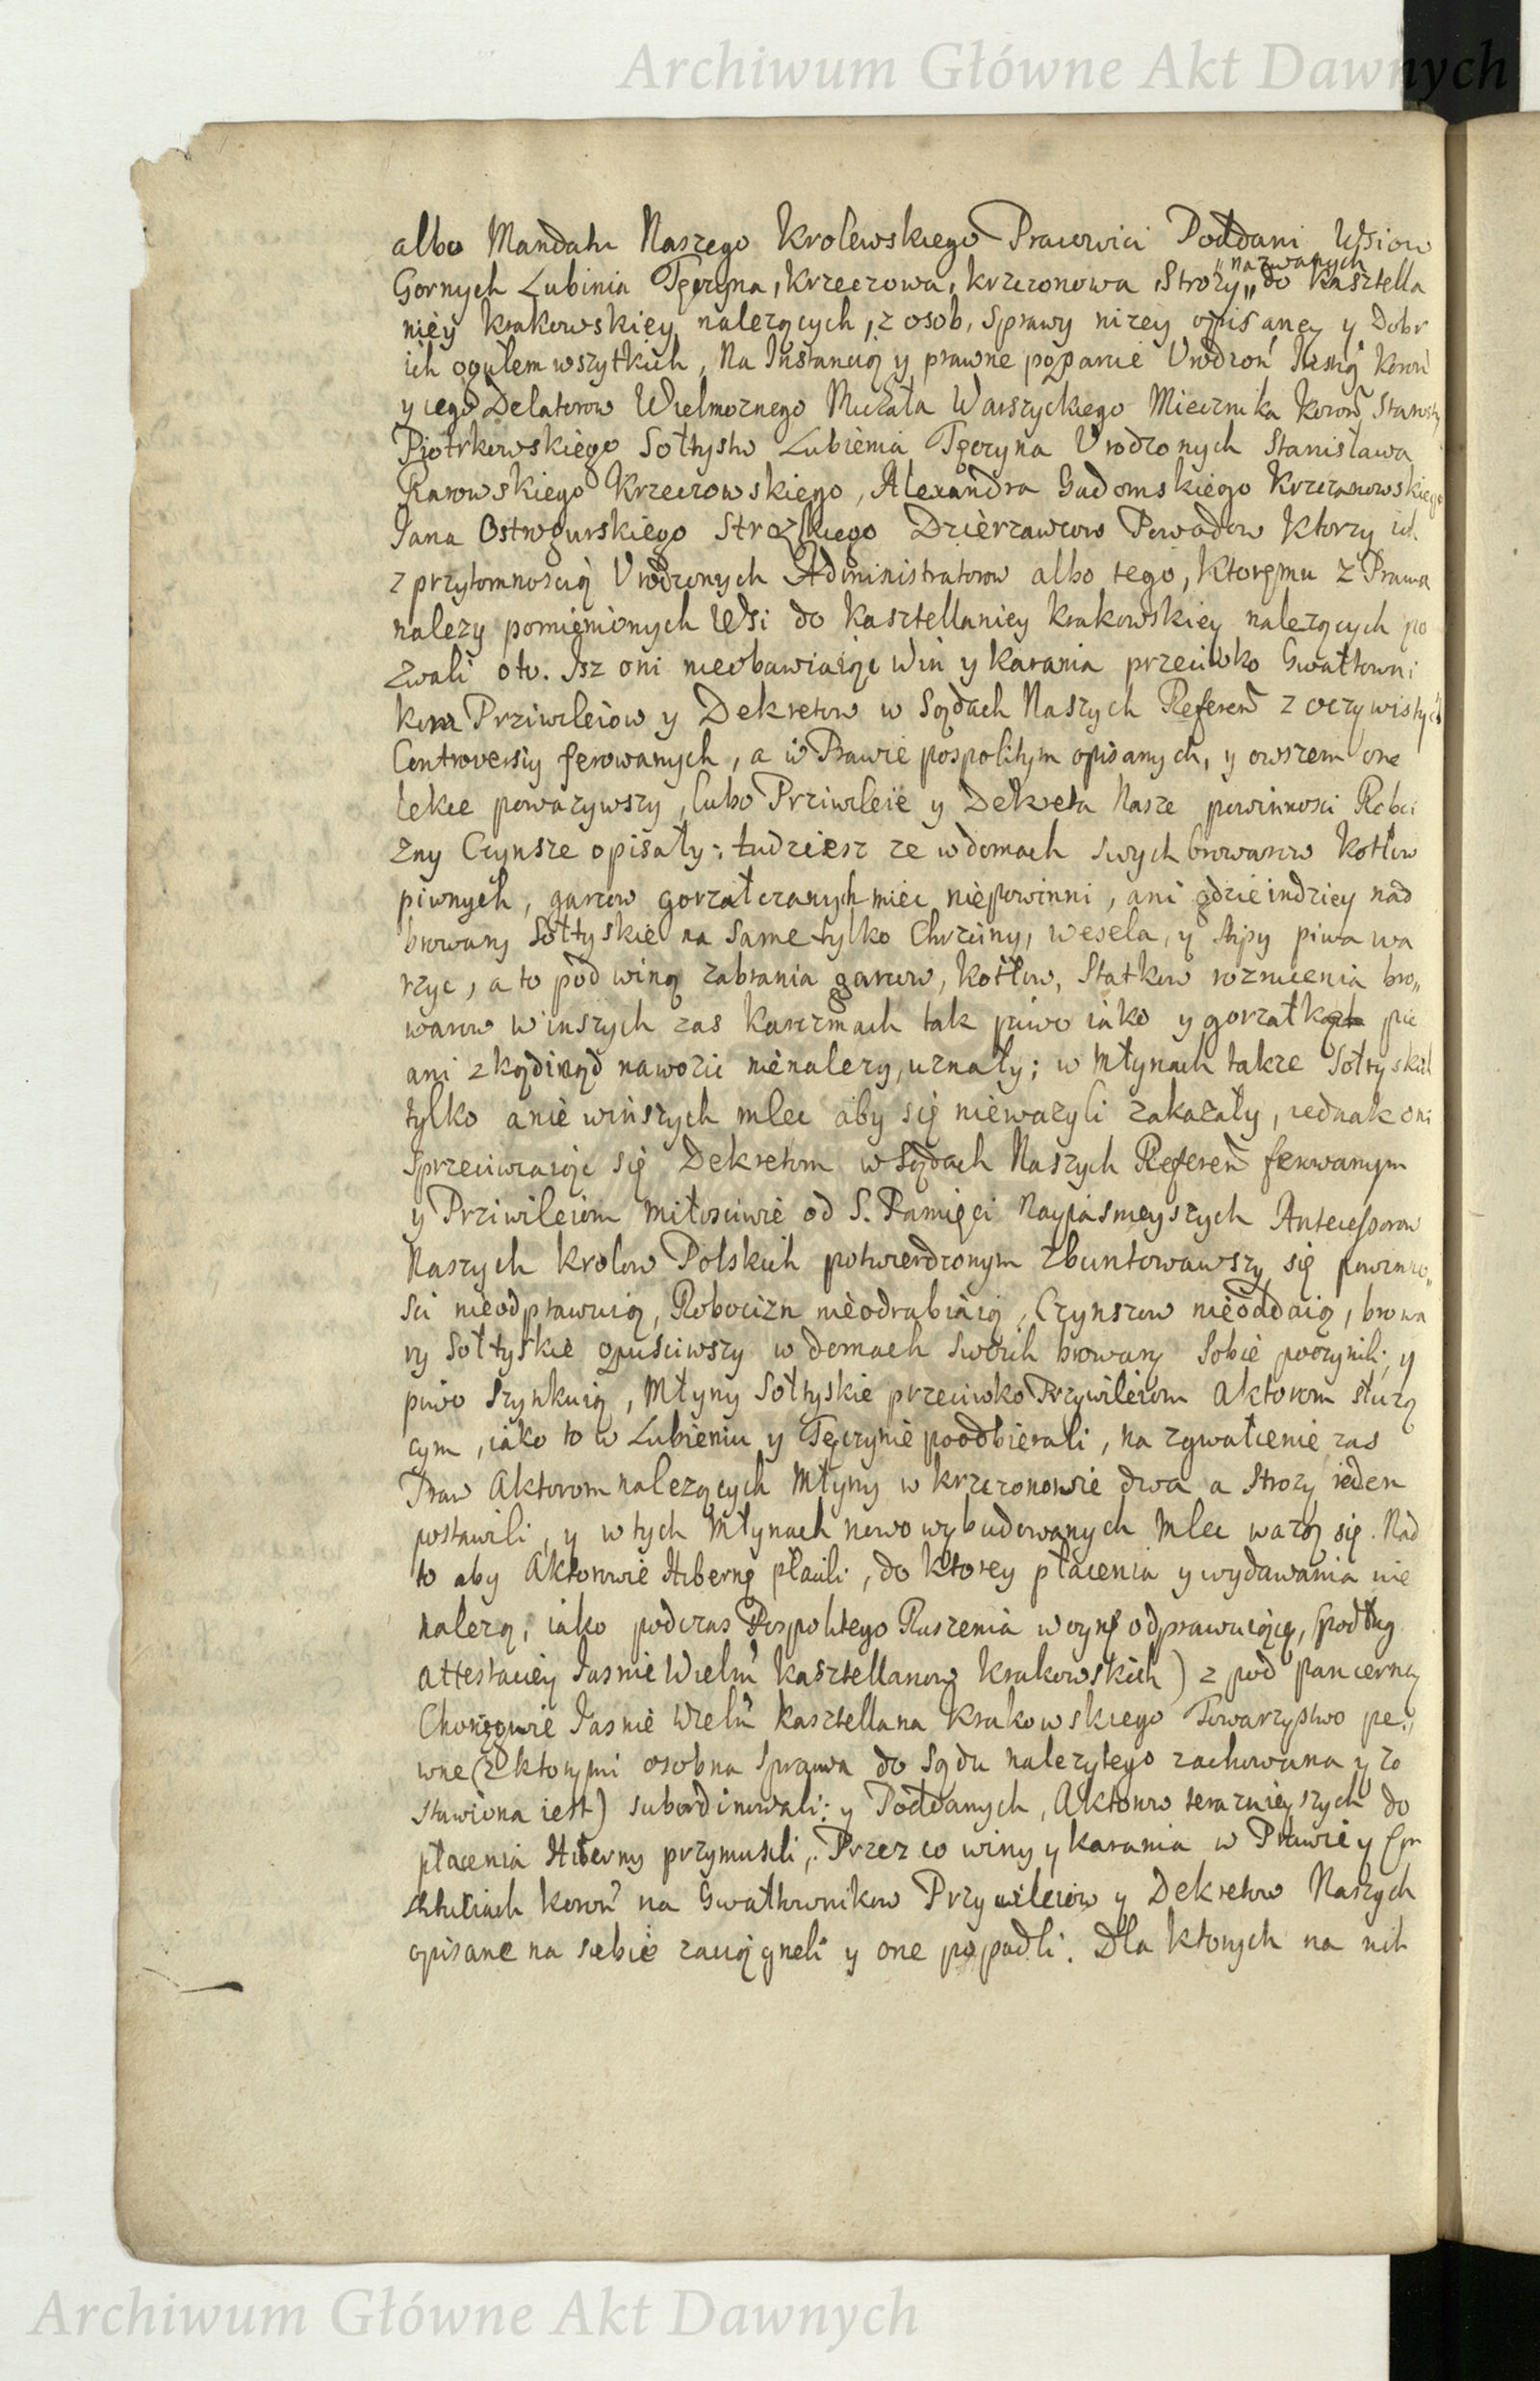 Archiwum Główne Akt Dawnych
albo Mandatu Naszego Krolewskiego Pracowici Poddani Wsiow
Gornych Lubinia Tęczyna, Krzeczowa, Krzczonowa Stroży „nazwanych„ do Kasztella
niey Krakowskiey nalezących, z osob, Sprawy nizey opisaney y Dobr
ich ogułem wszytkich, Na Instancią y prawne poparcie Vrodzoń Instig Koroń
y iego Delatorow Wielmoznego Michała Warszyckiego Miecznika Koroń Starosty
Piotrkowskiego Sołtystw Lubienia Tęczyna Vrodzonych Stanisława
Rarowskiego Krzeczowskiego, Alexandra Gadomskiego Krzczonowskiego
Jana Ostrogurskiego Strozskiego Dzierzawcow Powodow ktorzy ich
z przytomnoscią Vrodzonych Administratorow albo tego, ktoremu z Prawa
nalezy pomienionych Wsi do Kasztellaniey Krakowskiey nalezących po
zwali oto. Isz oni nieobawiaiąc Win y Karania przeciwko Gwałtowni
kom Priwileiow y Dekretow w Sądach Naszych Refereń z oczywistych
Controversiy ferowanych, a w Prawie pospolitym opisanych, y owszem one
lekce powazywszy, lubo Priwileie y Dekreta Nasze powinnosci Roboci
zny Czynsze opisały; tudziesz ze w domach swych browarow Kotłow
piwnych, garcow gorzałczanych miec niepowinni, ani gdzieindziey nad
browary Sołtyskie na same tylko Chrzciny, wesela, y stypy piwa wa
rzyc, a to pod winą zabrania garcow, Kotłow, Statkow rozrucenia bro„
warow w inszych zas Karczmach tak piwo iako y gorzałk pic
ani zkądinąd nawozic nienalezy, uznały; w Młynach takze Sołtyskich
tylko a nie winszych mlec aby się niewazyli zakazały, iednak oni
Sprzeciwiaiąc się Dekretom w Sądach Naszych Refereń ferowanym
y Priwileiom miłosciwie od S. Pamięci Nayiasnieyszych Antecessorow
Naszych Krolow Polskich potwierdzonym zbuntowawszy się powinno„
sci nieodprawuią, Robocizn nieodrabiaią, Czynszow nieoddaią, browa
ry Sołtyskie opusciwszy w domach swoich browary sobie poczynili; y
piwo szynkuią, Młyny Sołtyskie przeciwko Przywileiom Aktorom słuzą
cym, iako to w Lubieniu y Tęczynie poodbierali, na zgwałcenie zas
Praw Aktorom nalezących Młyny w Krzczonowie dwa a Strozy ieden
postawili, y w tych Młynach nowo wybudowanych mlec wazą się. Nad
to aby Aktorowie Hibernę płacili, do ktorey płacenia y wydawania nie
nalezą, iako podczas Pospolitego Ruszenia woynę odprawuiący, (podług
attestaciey Jasnie Wielm̃ Kasztellanow Krakowskich) z pod pancerney
Chorągwie Jasnie Wielm̃ Kasztellana Krakowskiego Towarzystwo pe„
wne (z ktorymi osobna sprawa do Sądu nalezytego zachowana y zo
stawiona iest) subordinowali; y Poddanych, Aktorow terazniejszych do
płacenia Hiberny przymusili, Przez co winy y karania w Prawie y Con
stituciach Koroń na Gwałtownikow Przywileiow y Dekretow Naszych
opisane na siebie zaciągneli y one popadli. Dla ktorych na nich
Archiwum Główne Akt Dawnych